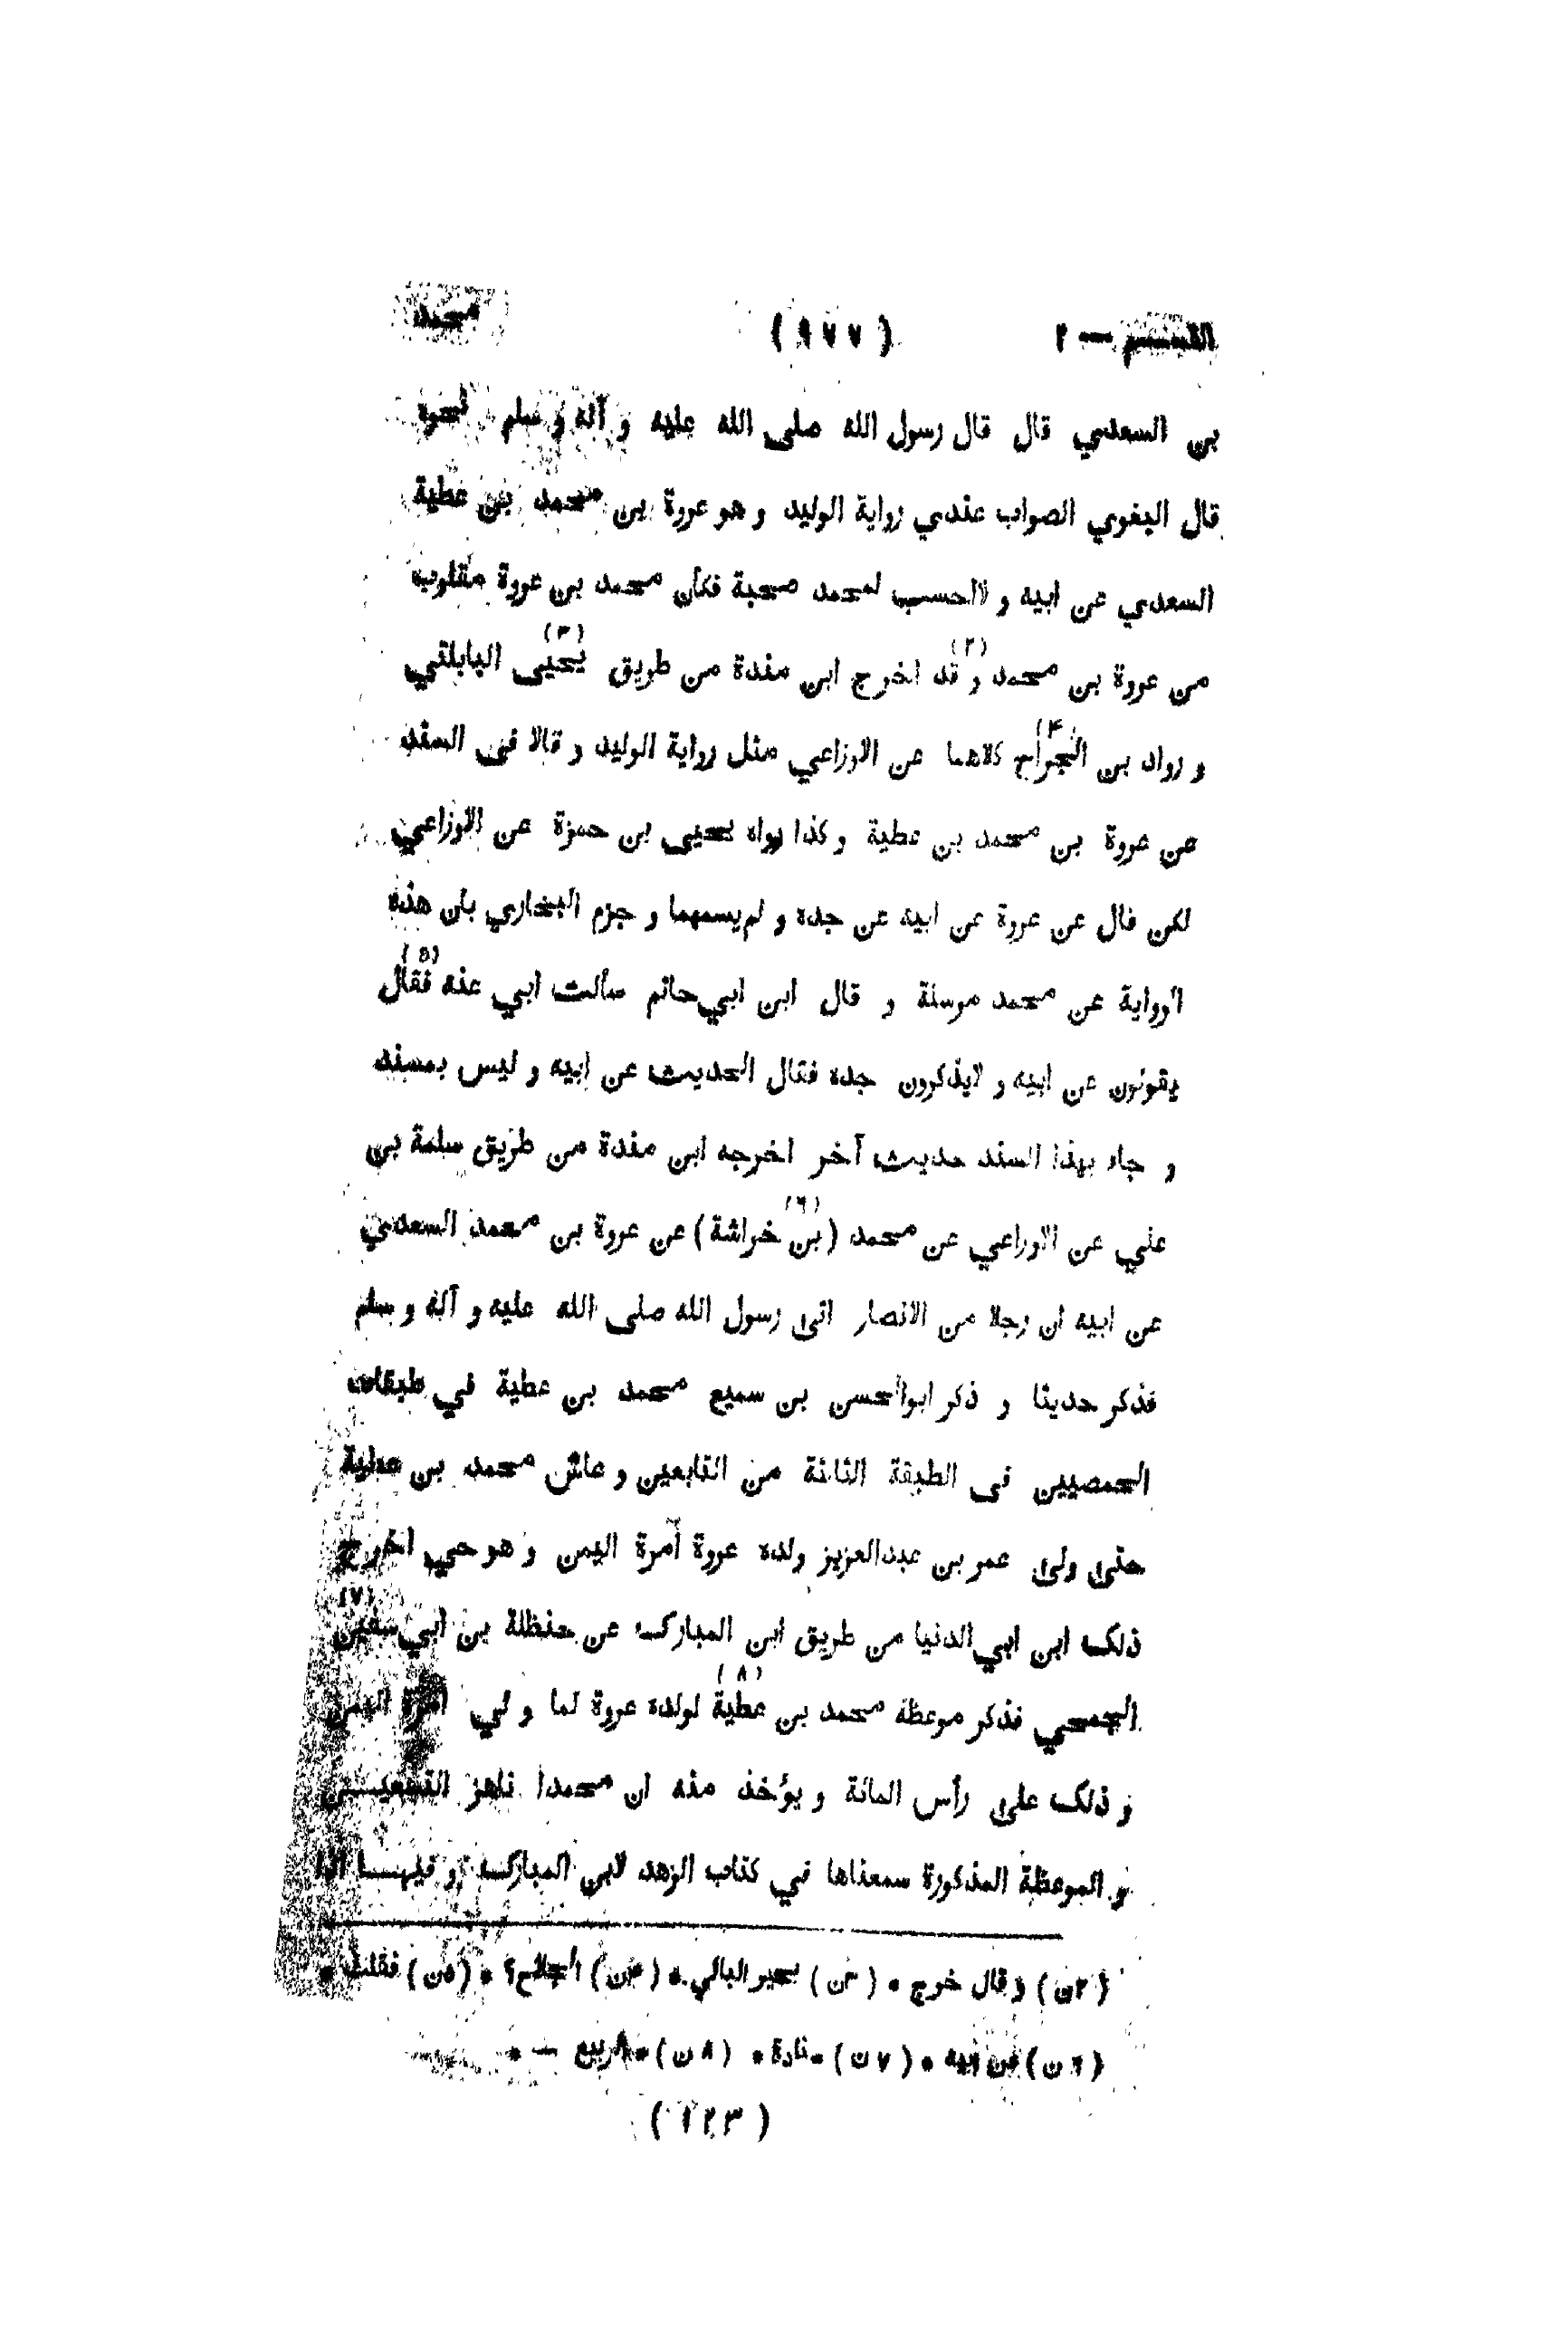 القسم — ٢ (٩٧٧) محمد
بن السعدي قال قال رسول الله صلى الله عليه و آله و سلم نحوه
قال البغوي الصواب عندي رواية الوليد و هو عروة بن محمد بن عطية
السعدي عن ابيه و لااحسب لمحمد صحبة فكأن محمد بن عروة مقلوب
من عروة بن محمد و(٢) قد اخرج ابن مندة من طريق يحيى(٣) البابلتي
و رواد بن الجراح(۴) كلاهما عن الاوزاعي مثل رواية الوليد و قالا فى السند
عن عروة بن محمد بن عطية و كذا رواه يحيى بن حمزة عن الاوزاعي
لكن قال عن عروة عن ابيه عن جده و لم يسمهما و جزم البخاري بان هذه
الرواية عن محمد مرسلة و قال ابن ابي حاتم سألت ابي عنه فقال(٥)
يقولون عن ابيه و لايذكرون جده فقال الحديث عن ابيه و ليس بمسند
و جاء بهذا السند حديث آخر اخرجه ابن مندة من طريق سلمة بن
علي عن الاوزاعي عن محمد (بن(٦) خراشة) عن عروة بن محمد السعدي
عن ابيه ان رجلا من الانصار اتى رسول الله صلى الله عليه و آله و سلم
فذكر حديثا و ذكر ابوالحسن بن سميع محمد بن عطية في طبقات
الحمصيين فى الطبقة الثالثة من التابعين و عاش محمد بن عطية
حتى ولى عمر بن عبدالعزيز ولده عروة أمرة اليمن و هو حي اخرج
ذلك ابن ابي الدنيا من طريق ابن المبارك عن حنظلة بن أبي سفين(٧)
الجمحي فذكر موعظة محمد بن عطية(٨) لولده عروة لما ولي أمرة اليمن
و ذلك على رأس المائة و يؤخذ منه ان محمدا ناهز التسعيـــن
و الموعظة المذكورة سمعناها في كتاب الزهد لابن المبارك و فيهـــا اذا
(٢ن) و قال خرج * (٣ن) يحير البالي * (۴ن) الجلاح؟ * (٥ن) فقلت *
(٦ ن) عن ابيه * (٧ ن) - نادة * (٨ ن) * ربيع — *
(١٢٣)